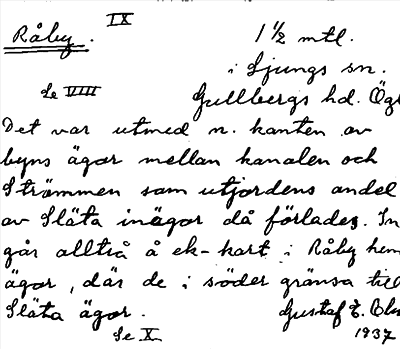 IX
Råby. 1 1/2 mtl.
i Ljungs sn.
Se VIII Gullbergs hd. Ögl
Det var utmed n. kanten av
byns ägor mellan kanalen och
Strömmen som utjordens andel
av Släta inägor då förlades. In
går alltså å ek-kart i Råby hem
ägor, där de i söder gränsa till
Släta ägor. Gustaf E.
Se X 1937